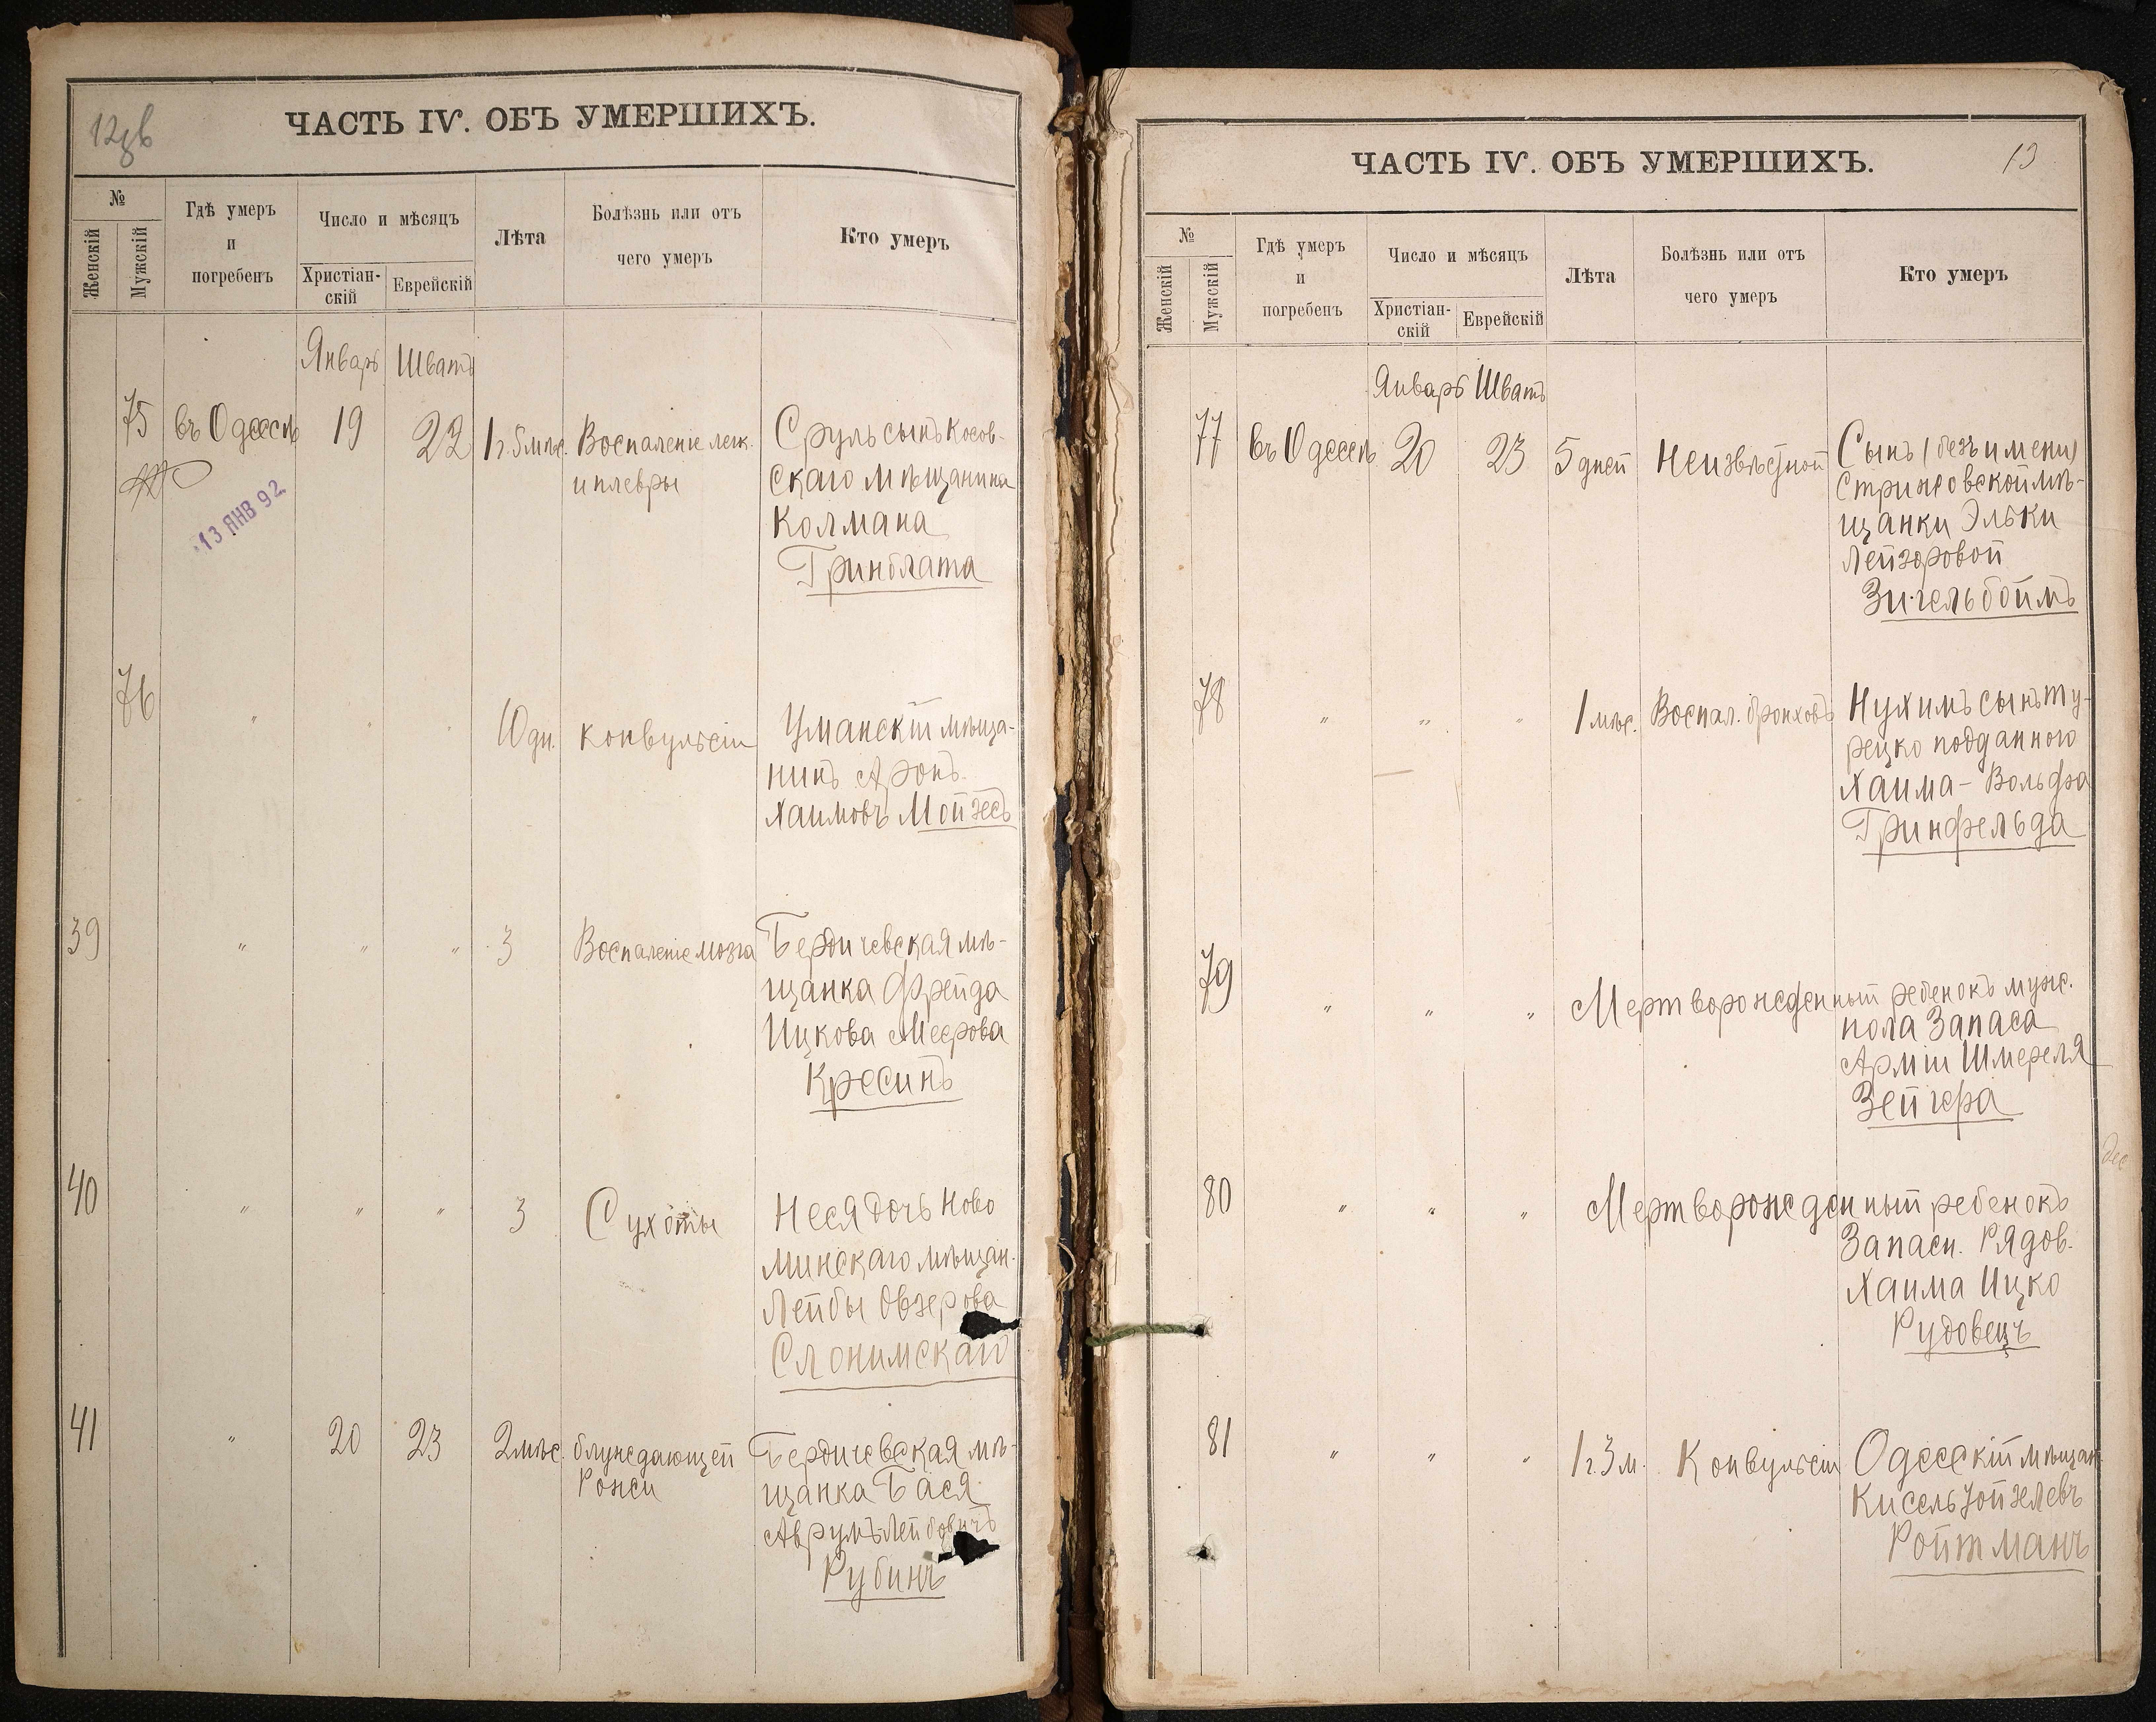 12об
ЧАСТЬ IV. ОБЪ УМЕРШИХЪ.
№
Женскій
Мужскій
Гдѣ умеръ
и
погребенъ
Число и мѣсяцъ
Христіан-
скій
Еврейскій
Лѣта
Болѣзнь или отъ
чего умеръ
Кто умеръ
Январь Шватъ
75 въ Одессѣ 19 22 1 г. 5 мѣс. Воспаленіе легк. Сруль сынъ Косов-
и плевры скаго мѣщанина
13 ЯНВ 92
Колмана
Гринблата
76 " " " 10 дн. Конвульсіи Уманскій мѣща-
нинъ Аронъ
Хаимовъ Мойзесъ
39 " " " 3 Воспаленіе мозга Бердичевская мѣ-
щанка Фрейда
Ицкова Меерова
Кресинъ
40 " " " 3 Сухоты Неся дочь Ново
минскаго мѣщан.
Лейбы Овзерова
Слонимскаго
41 " 20 23 2 мѣс. блуждающей Бердичевская мѣ-
Рожи щанка Бася
Аврумъ-Лейбовичъ
Рубинъ
13
ЧАСТЬ IV. ОБЪ УМЕРШИХЪ.
№
Женскій
Мужскій
Гдѣ умеръ
и
погребенъ
Число и мѣсяцъ
Христіан-
скій
Еврейскій
Лѣта
Болѣзнь или отъ
чего умеръ
Кто умеръ
Январь Шватъ
77 въ Одессѣ 20 23 5 дней Неизвѣстной Сынъ (безъ имени)
Стрижовской мѣ-
щанки Эльки
Лейзоровой
Зигельбоймъ
78 " " " 1 мѣс. Воспал. бронховъ Нухимъ сынъ ту-
рецко подданного
Хаима-Вольфа
Гринфельда
79 " " " Мертворожденный ребенокъ муж.
пола Запаса
Арміи Шмереля
Зейгера
80 " " " Мертворожденный ребенокъ
Запасн. Рядов.
Хаима Ицко
Рудовецъ
81 " " " 1 г. 3 м. Конвульсіи Одесскій мѣщан.
Кисель Зойзлевъ
Ройтманъ